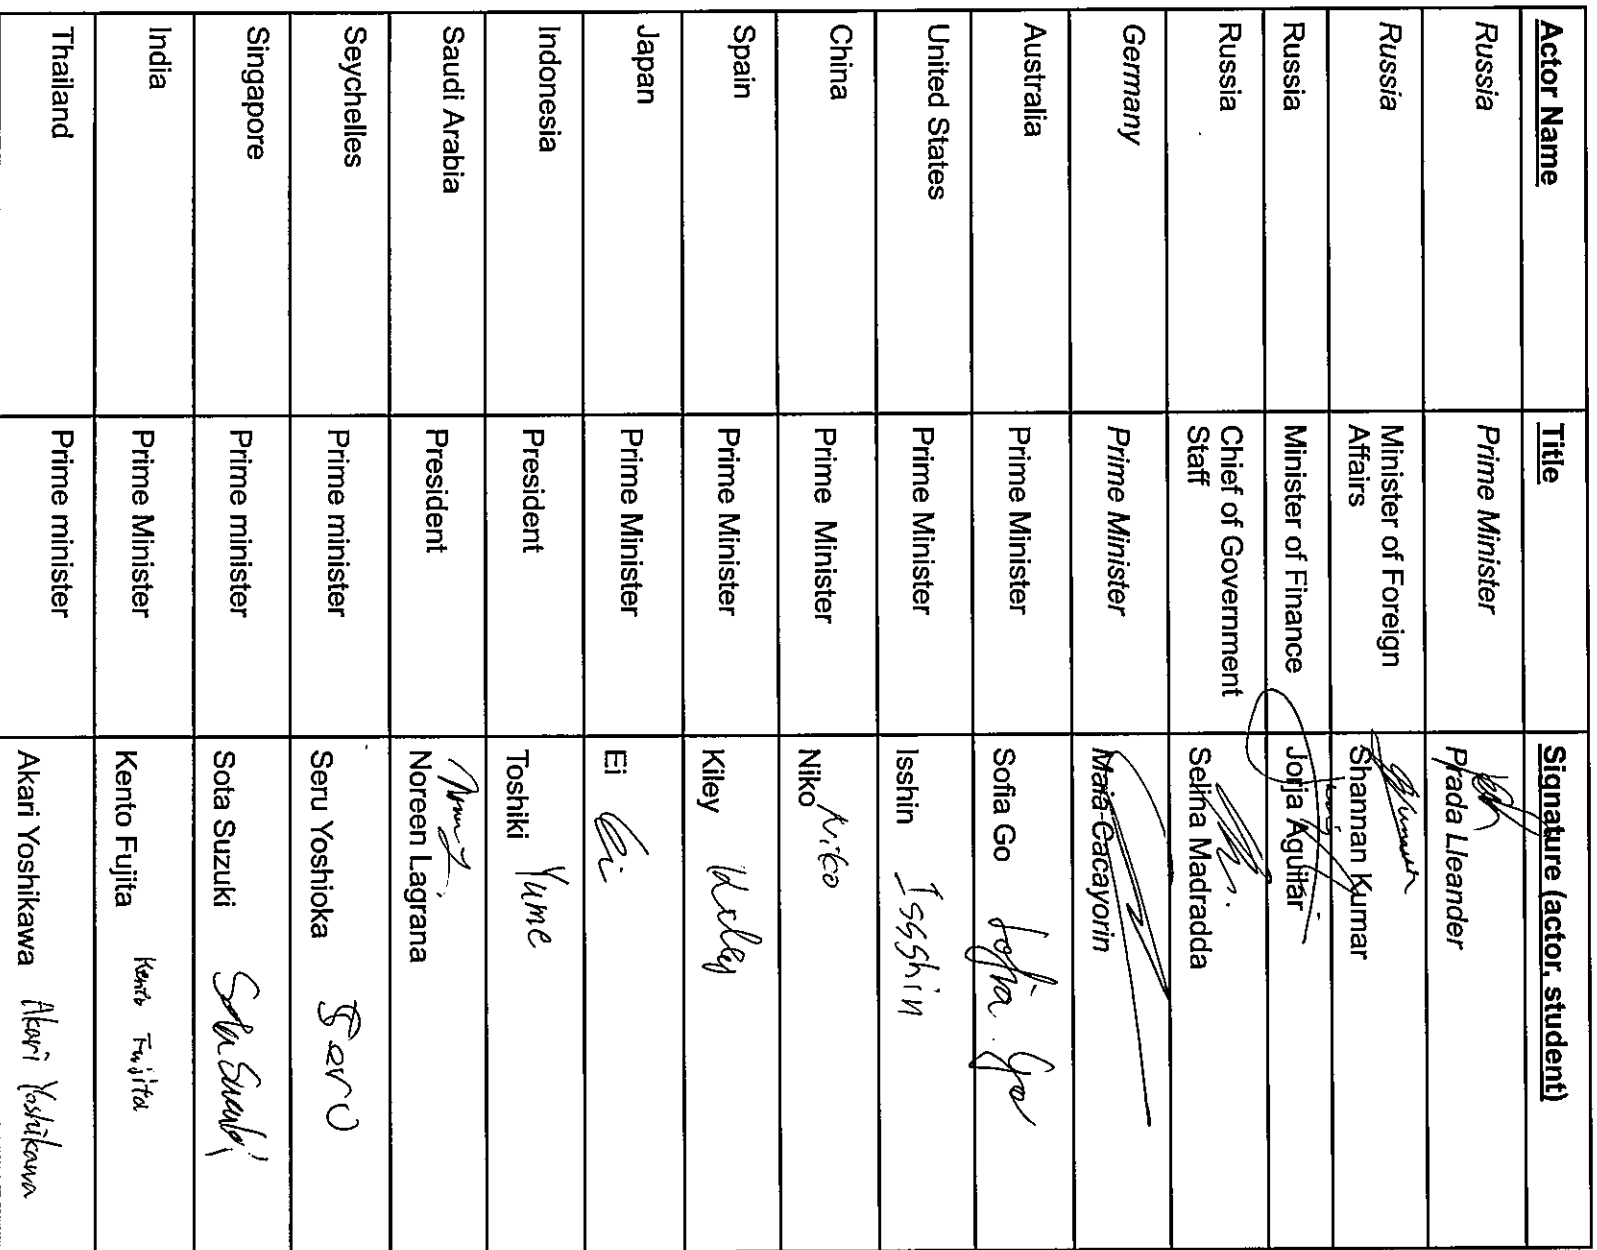 Actor Name Title Signature (actor, student)
Russia Prime Minister Prada Lleander
Russia Minister of Foreign Shannan Kumar
Affairs
Russia Minister of Finance Jorja Aguilar
Russia Chief of Government Selina Madradda
Staff
Germany Prime Minister Maia Cacayorin
Australia Prime Minister Sofia Go Sofia Go
United States Prime Minister Isshin Issshin
China Prime Minister Niko Niko
Spain Prime Minister Kiley Kiley
Japan Prime Minister Ei Ei
Indonesia President Toshiki Yume
Saudi Arabia President Noreen Lagrana
Seychelles Prime minister Seru Yoshioka Seru
Singapore Prime minister Sota Suzuki Sota Suzuki
India Prime Minister Kento Fujita Kento Fujita
Thailand Prime minister Akari Yoshikawa Akari Yoshikawa